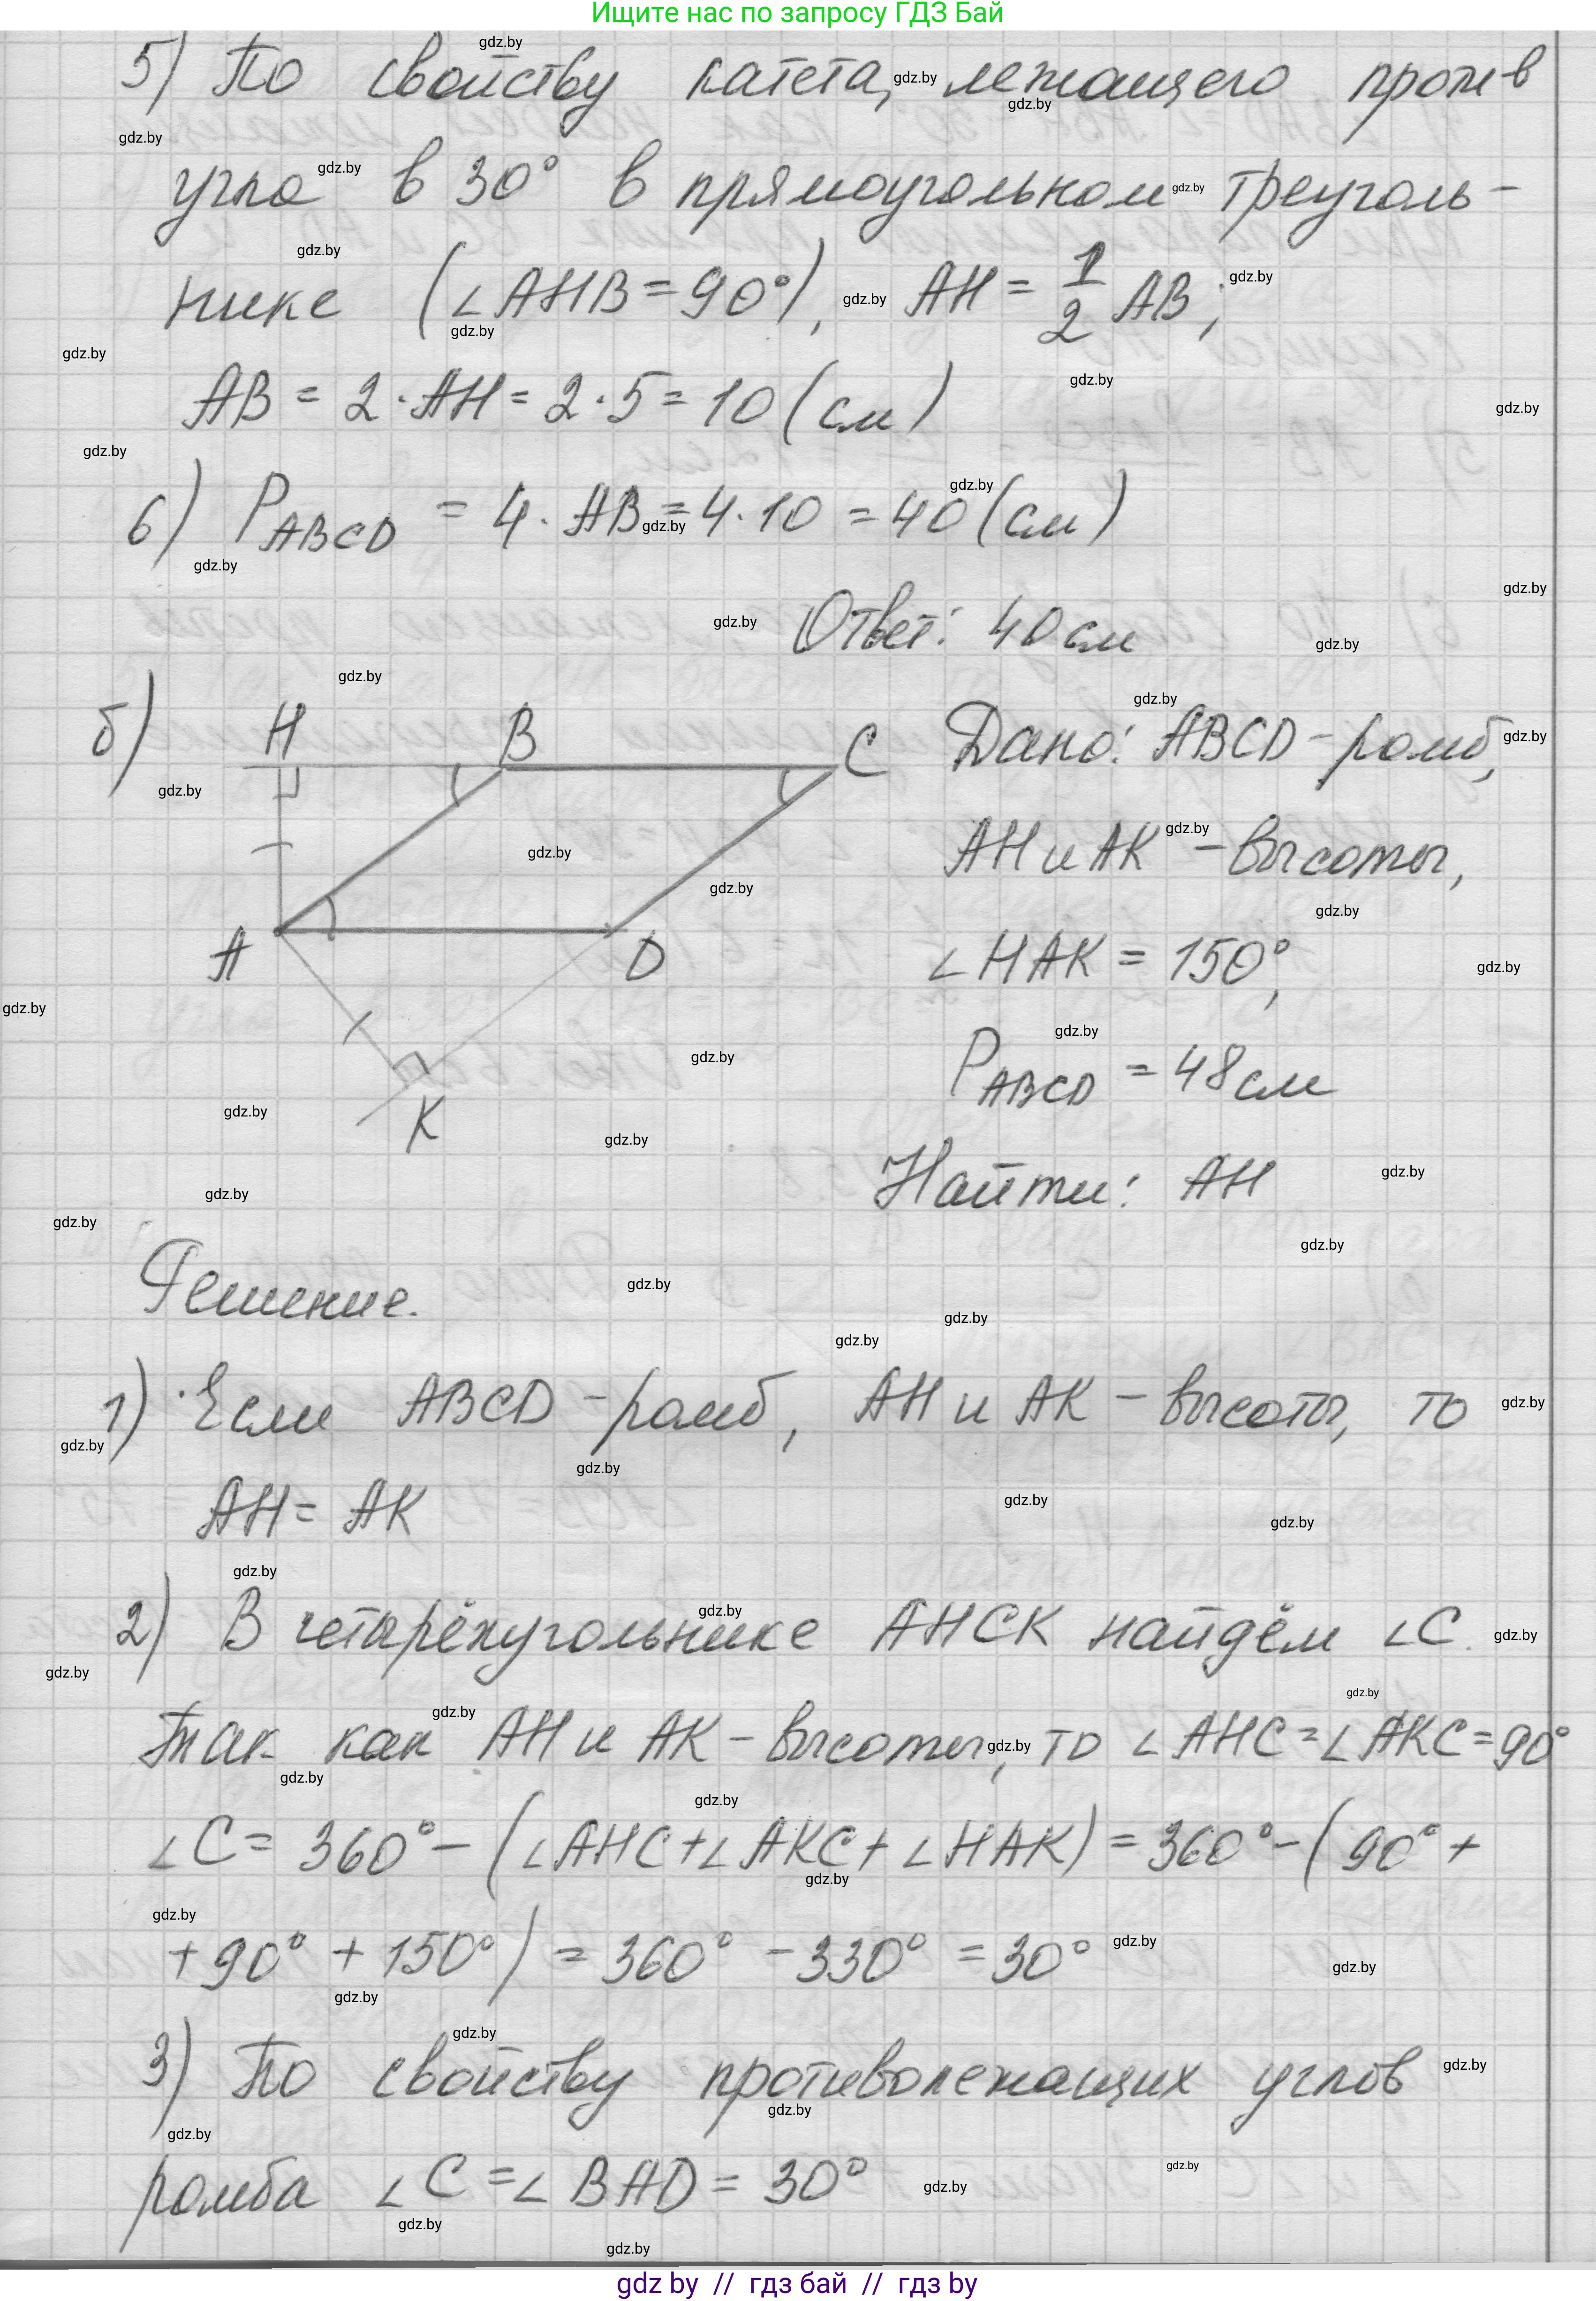 Ищите нас по запросу ГДЗ Бай
5) По свойству катета, лежащего против
угла в 30° в прямоугольном треуголь-
нике (∠AHB = 90°), AH = 1/2 AB;
AB = 2·AH = 2·5 = 10 (см)
6) P_ABCD = 4·AB = 4·10 = 40 (см)
Ответ: 40 см
б) H B C
A D
K
Дано: ABCD – ромб,
AH и AK – высоты,
∠HAK = 150°,
P_ABCD = 48 см
Найти: AH
Решение.
1) Если ABCD – ромб, AH и AK – высоты, то
AH = AK
2) В четырёхугольнике AHCK найдём ∠C.
Так как AH и AK – высоты, то ∠AHC = ∠AKC = 90°
∠C = 360° – (∠AHC + ∠AKC + ∠HAK) = 360° – (90° +
+ 90° + 150°) = 360° – 330° = 30°
3) По свойству противолежащих углов
ромба ∠C = ∠BAD = 30°
gdz.by
gdz by // гдз бай // гдз by